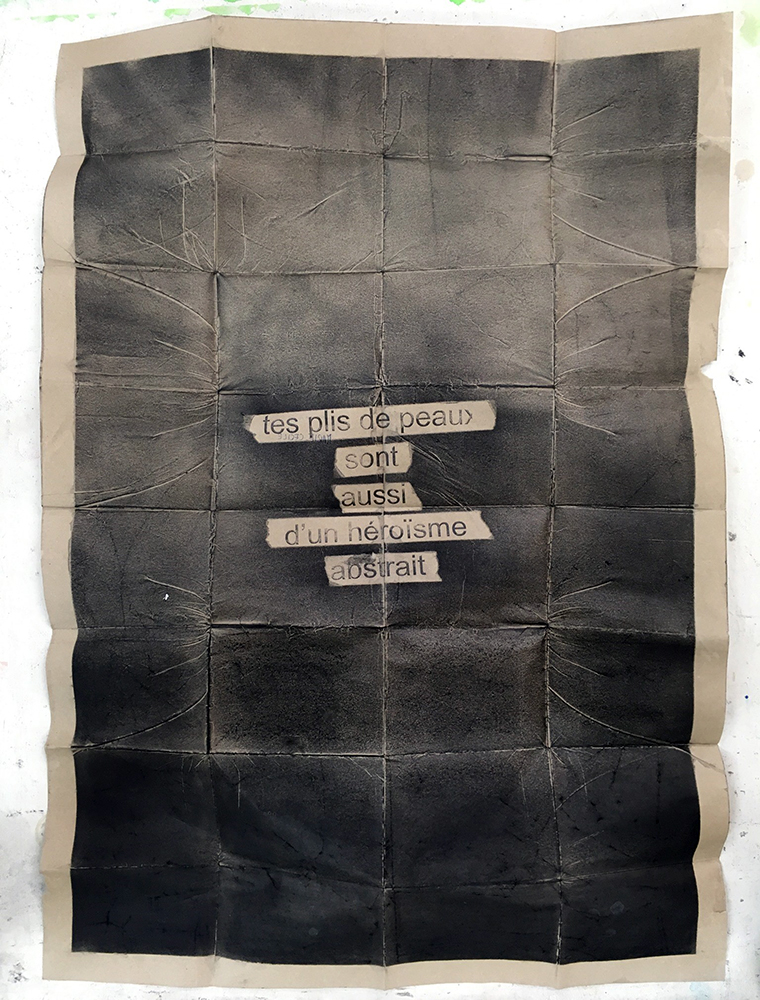 tes plis de peaux
sont
aussi
d'un héroïsme
abstrait